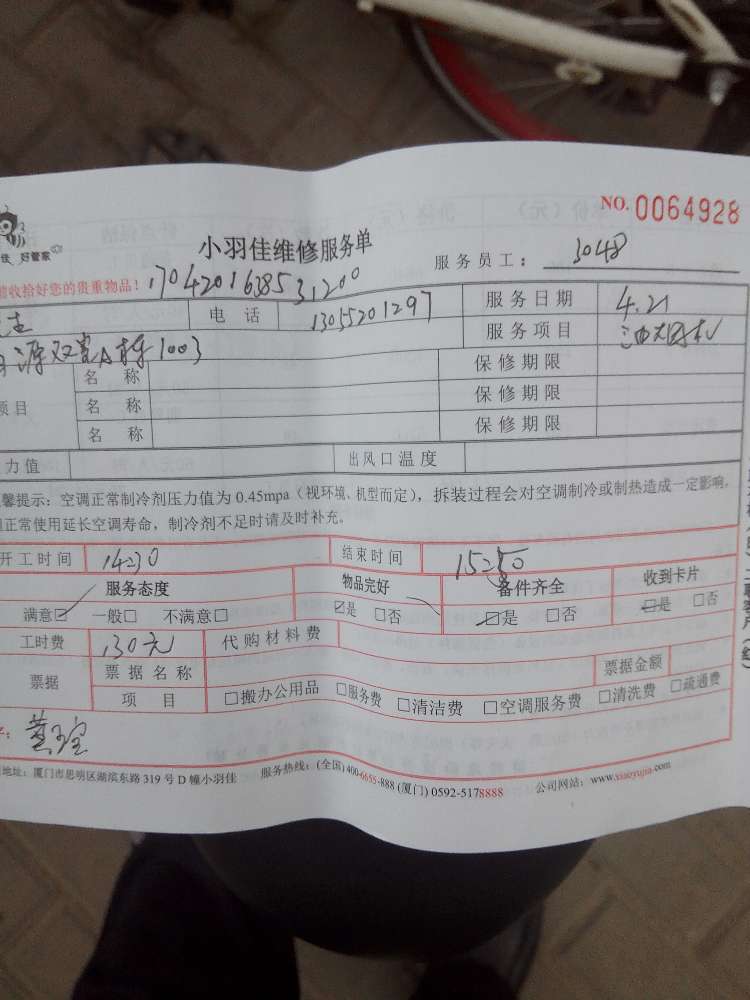 NO. 0064928
佳 好管家
小羽佳维修服务单
服务员工: 3048
收给好您的贵重物品!
1704201638531200
电 话 13055201297 服务日期 4.21
源双 1003 服务项目 油烟机
名 称 保修期限
项目 名 称 保修期限
名 称 保修期限
力值 出风口温度
馨提示:空调正常制冷剂压力值为 0.45mpa(视环境、机型而定),拆装过程会对空调制冷或制热造成一定影响。
正常使用延长空调寿命,制冷剂不足时请及时补充。
开工时间 1430 结束时间
服务态度 物品完好 备件齐全 收到卡片
满意☑ 一般□ 不满意□ ☑是 □否 ☑是 □否 ☑是 □否
工时费 130元 代购材料费
票据 票据名称 票据金额
项 目 □搬办公用品 □服务费 □清洁费 □空调服务费 □清洗费 □疏通费
地址:厦门市思明区湖滨东路 319 号 D 幢小羽佳 服务热线:(全国)400-6655-888 (厦门) 0592-5178888 公司网站:www.xiaoyujia.com